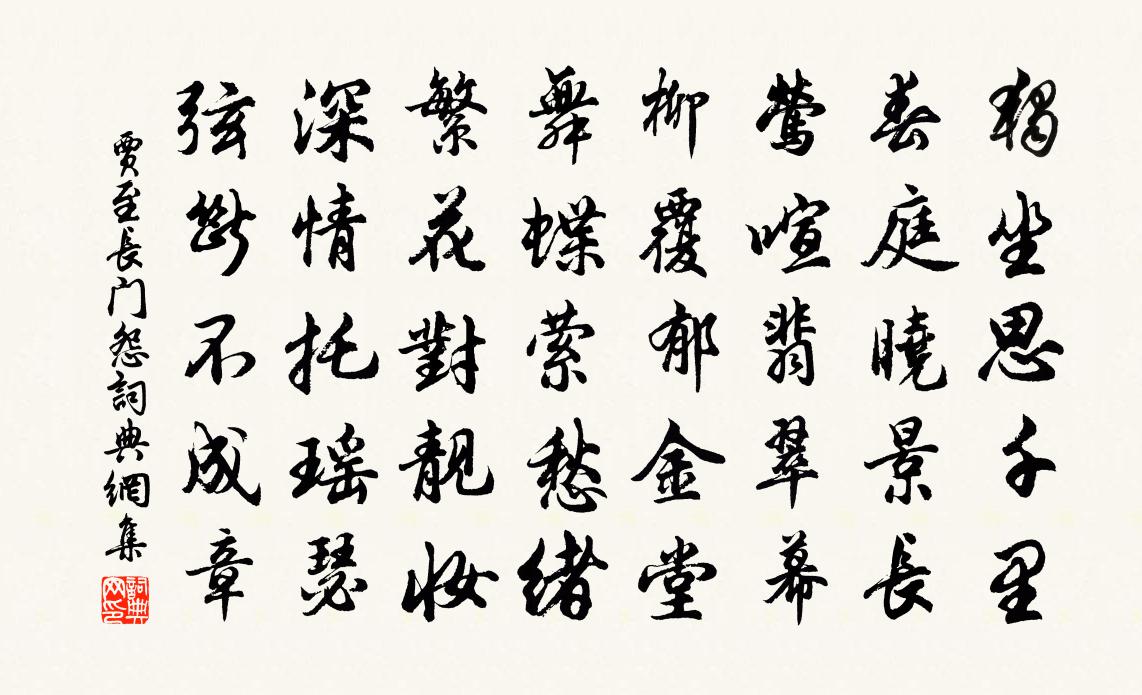 獨坐思千里
春庭曉景長
鶯喧翡翠幕
柳覆郁金堂
舞蝶縈愁緒
繁花對靚妝
深情托瑤瑟
弦斷不成章
賈至長門怨詞典網集
詞典网印